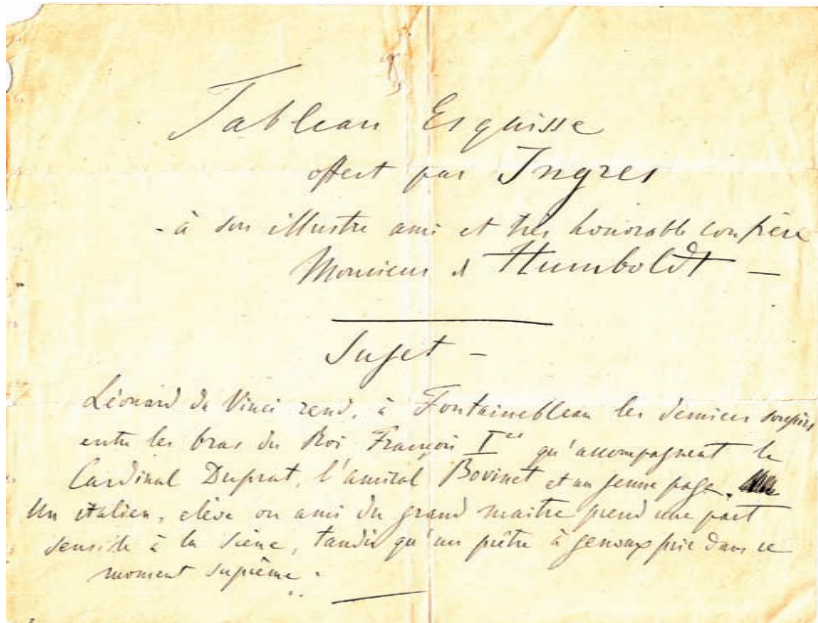 Tableau Esquisse
offert par Ingres
- à son illustre ami et très honorable confrère
Monsieur d Humboldt -
Sujet -
Léonard de Vinci rend, à Fontainebleau les derniers soupirs
entre les bras du Roi François Ier qu'accompagnent le
Cardinal Duprat, l'amiral Bovinet et un jeune page.
Un italien, élève ou ami du grand maitre prend une part
sensible à la scène, tandis qu'un prêtre à genoux prie dans ce
moment suprême.